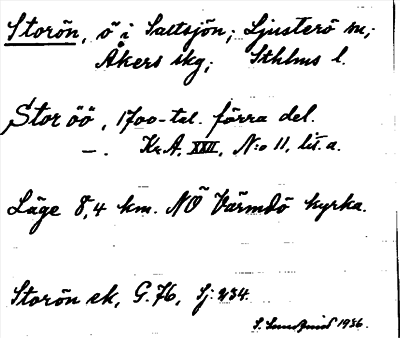 Storön, ö i Saltsjön; Ljusterö sn,
Åkers skg; Sthlms l.
Stor öö, 1700-tal. förra del.
—. Kr.A. XXII, N:o 11, lit. a.
Läge 8,4 km. NÖ Värmdö kyrka.
Storön ek, G. 76, Sj: 234.
S. 1936.